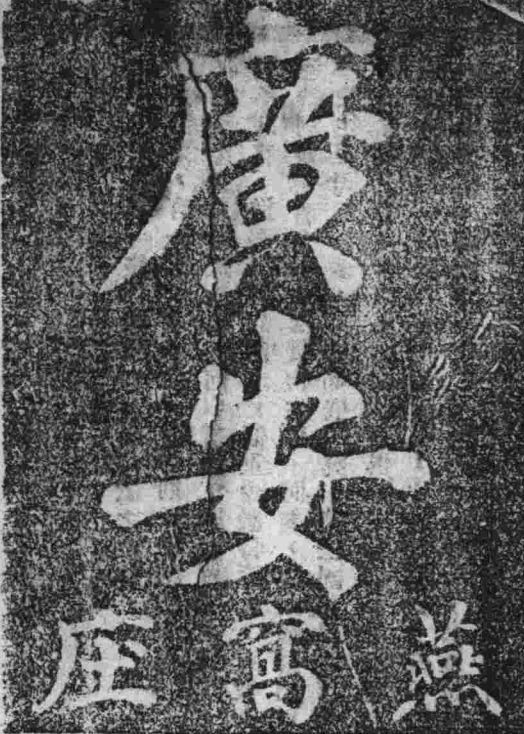 廣安
燕窩庄